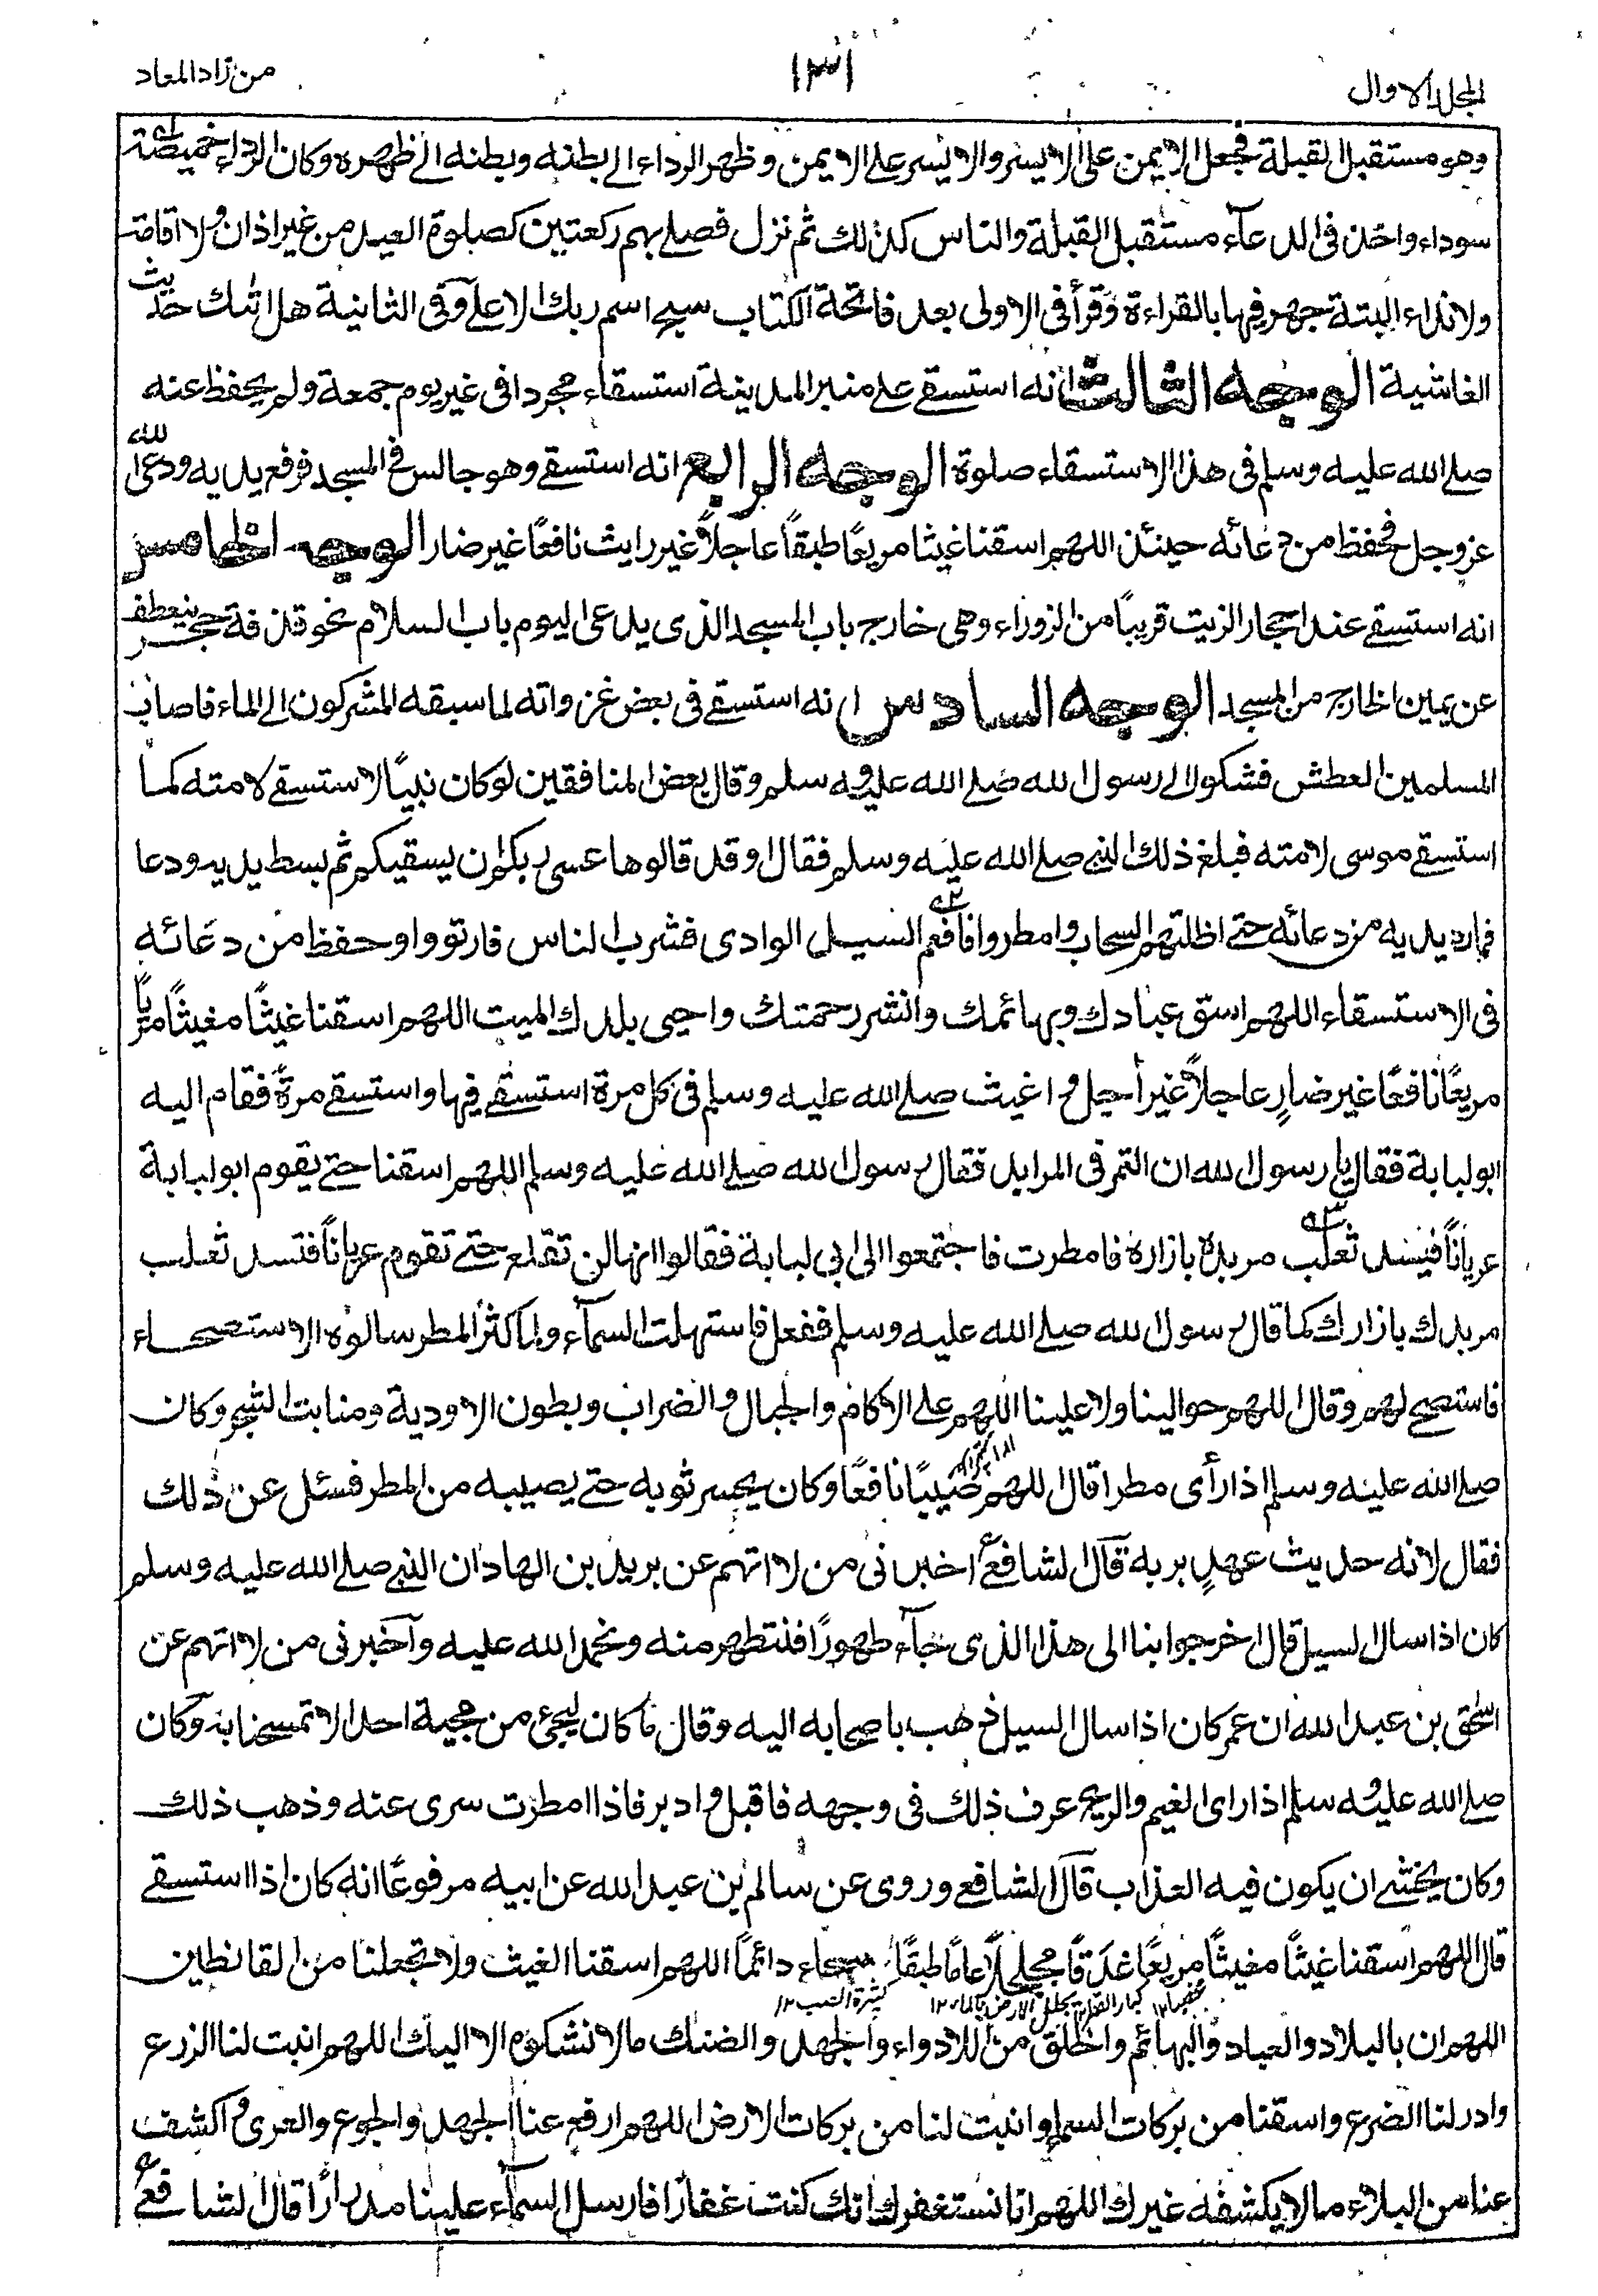 المجلد الاول
١٣١
من زاد المعاد
وهو مستقبل القبلة فجعل الايمن على الايسر والايسر على الايمن وظهر الرداء الى بطنه وبطنه الى ظهره وكان الرداء خميصة
سوداء واخذ فى الدعآء مستقبل القبلة والناس كذلك ثم نزل فصلى بهم ركعتين كصلوة العيد من غير اذان ولا اقامة
ولا نداء البتة جهر فيها بالقراءة وقرأ فى الاولى بعد فاتحة الكتاب سبح اسم ربك الاعلى وفى الثانية هل اتٰك حديث
الغاشية الوجه الثالث انه استسقى على منبر المدينة استسقاء مجردا فى غير يوم جمعة ولم يحفظ عنه
صلى الله عليه وسلم فى هذا الاستسقاء صلوة الوجه الرابع انه استسقى وهو جالس فى المسجد فرفع يديه ودعى الله
عز وجل فحفظ من دعائه حينئذ اللهم اسقنا غيثا مريعًا طبقًا عاجلاً غير رايث نافعًا غير ضار الوجه الخامس
انه استسقى عند احجار الزيت قريبًا من الزوراء وهى خارج باب المسجد الذى يدعى اليوم باب السلام نحو قذفة حجر ينعطف
عن يمين الخارج من المسجد الوجه السادس انه استسقى فى بعض غزواته لما سبقه المشركون الى الماء فاصاب
المسلمين العطش فشكوا الى رسول الله صلى الله عليه وسلم وقال بعض المنافقين لو كان نبيًا لاستسقى لامته كما
استسقى موسى لامته فبلغ ذلك النبى صلى الله عليه وسلم فقال او قد قالوها عسى ربكم ان يسقيكم ثم بسط يديه ودعا
فما رد يديه من دعائه حتى اظلتهم السحاب وامطروا فافعم السيل الوادى فشرب الناس فارتووا وحفظ من دعائه
فى الاستسقاء اللهم اسق عبادك وبهائمك وانشر رحمتك واحيى بلدك الميت اللهم اسقنا غيثًا مغيثًا مريًا
مريعًا نافعًا غير ضارٍ عاجلاً غير أجل واغيث صلى الله عليه وسلم فى كل مرة استسقى فيها واستسقى مرةً فقام اليه
ابو لبابة فقال يا رسول الله ان التمر فى المرابد فقال رسول الله صلى الله عليه وسلم اللهم اسقنا حتى يقوم ابو لبابة
عريانًا فيسد ثعلب مربده بازاره فامطرت فاجتمعوا الى ابى لبابة فقالوا انها لن تقلع حتى تقوم عريانًا فتسد ثعلب
مربدك بازارك كما قال رسول الله صلى الله عليه وسلم ففعل فاستهلت السمآء ولما كثر المطر سالوه الاستصحاء
فاستصحى لهم وقال اللهم حوالينا ولا علينا اللهم على الاكام والجبال والضراب وبطون الاودية ومنابت الشجر وكان
صلى الله عليه وسلم اذا رأى مطرا قال اللهم صيبًا نافعًا وكان يحسر ثوبه حتى يصيبه من المطر فسئل عن ذلك
فقال لانه حديث عهدٍ بربه قال الشافعى اخبرنى من لا اتهم عن بريد بن الهاد ان النبى صلى الله عليه وسلم
كان اذا سال السيل قال اخرجوا بنا الى هذا الذى جآء طهورًا فنتطهر منه ونحمد الله عليه وآخبرنى من لا اتهم عن
اسحق بن عبد الله ان عمر كان اذا سال السيل ذهب باصحابه اليه وقال ما كان ليجئ من مجية احد الا تمسحنا به وكان
صلى الله عليه وسلم اذا راى الغيم والريح عرف ذلك فى وجهه فاقبل وادبر فاذا امطرت سرى عنه وذهب ذلك
وكان يخشى ان يكون فيه العذاب قال الشافعى وروى عن سالم بن عبد الله عن ابيه مرفوعًا انه كان اذا استسقى
قال اللهم اسقنا غيثًا مغيثًا مريعًا غدقًا مجللاً عامًا طبقًا سحاء دائمًا اللهم اسقنا الغيث ولا تجعلنا من القانطين
اللهم ان بالبلاد والعباد والبهائم والخلق من اللادواء والجهد والضنك ما لا نشكوه الا اليك اللهم انبت لنا الزرع
وادر لنا الضرع واسقنا من بركات السماء وانبت لنا من بركات الارض اللهم ارفع عنا الجهد والجوع والعرى واكشف
عنا من البلاء ما لا يكشفه غيرك اللهم انا نستغفرك انك كنت غفارًا فارسل السمآء علينا مدرارًا قال الشافعى